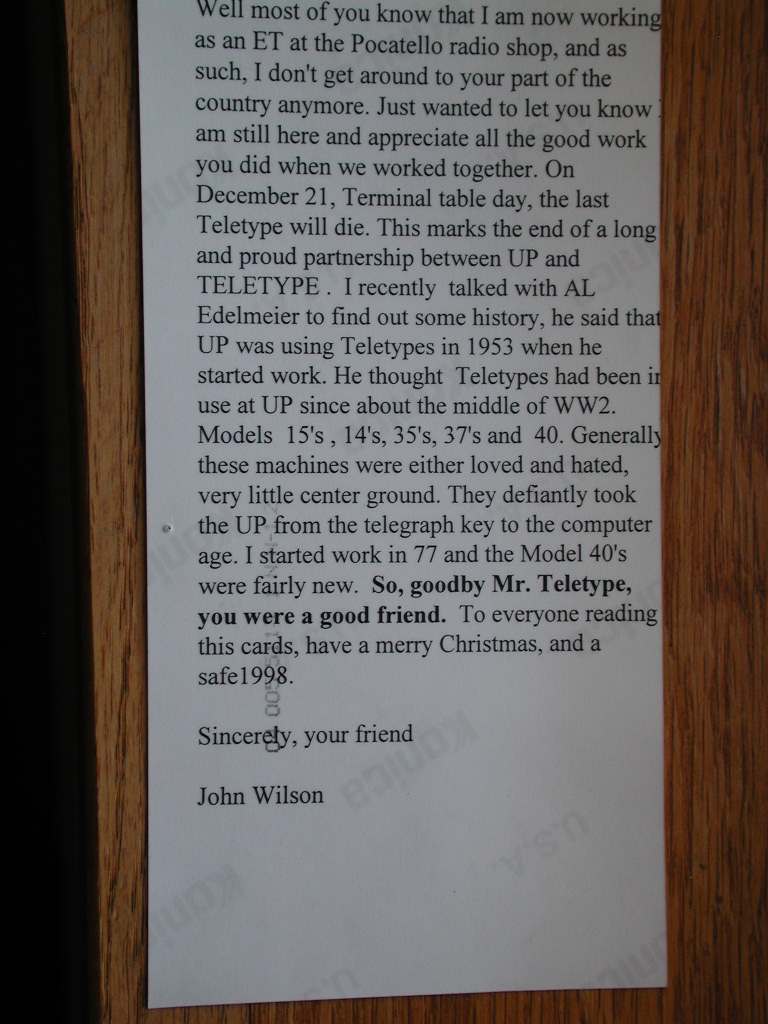 Well most of you know that I am now working
as an ET at the Pocatello radio shop, and as
such, I don't get around to your part of the
country anymore. Just wanted to let you know
am still here and appreciate all the good work
you did when we worked together. On
December 21, Terminal table day, the last
Teletype will die. This marks the end of a long
and proud partnership between UP and
TELETYPE . I recently talked with AL
Edelmeier to find out some history, he said that
UP was using Teletypes in 1953 when he
started work. He thought Teletypes had been in
use at UP since about the middle of WW2.
Models 15's , 14's, 35's, 37's and 40. Generally
these machines were either loved and hated,
very little center ground. They defiantly took
the UP from the telegraph key to the computer
age. I started work in 77 and the Model 40's
were fairly new. So, goodby Mr. Teletype,
you were a good friend. To everyone reading
this cards, have a merry Christmas, and a
safe1998.
Sincerely, your friend
John Wilson
Konica
U.S.A.
Konica